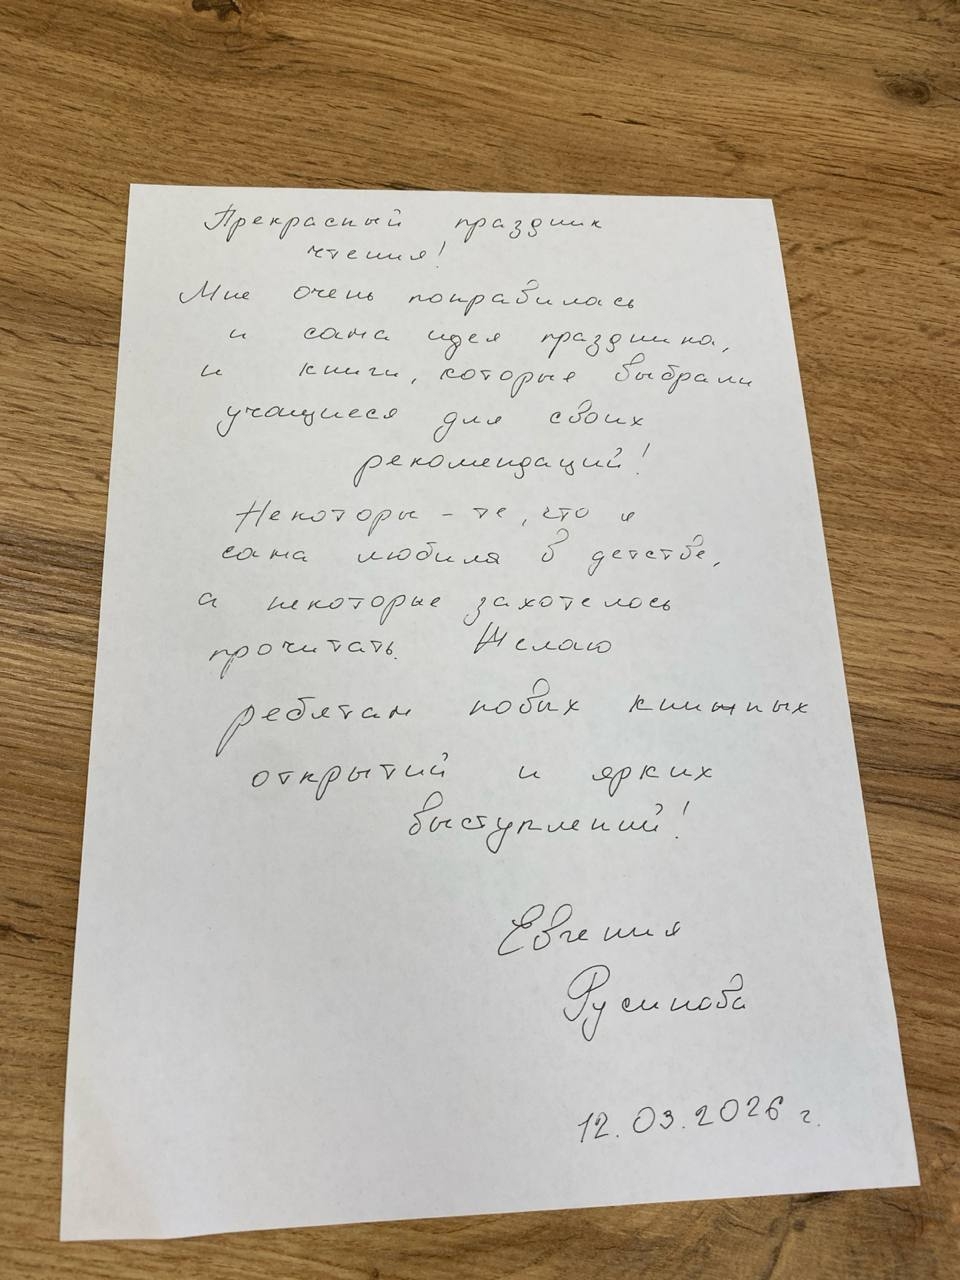 Прекрасный праздник
чтения!
Мне очень понравилась
и сама идея праздника,
и книги, которые выбрали
учащиеся для своих
рекомендаций!
Некоторы - те, что я
сама любила в детстве,
а некоторые захотелось
прочитать. Желаю
ребятам новых книжных
открытий и ярких
выступлений!
Евгения
Русинова
12.03.2026 г.